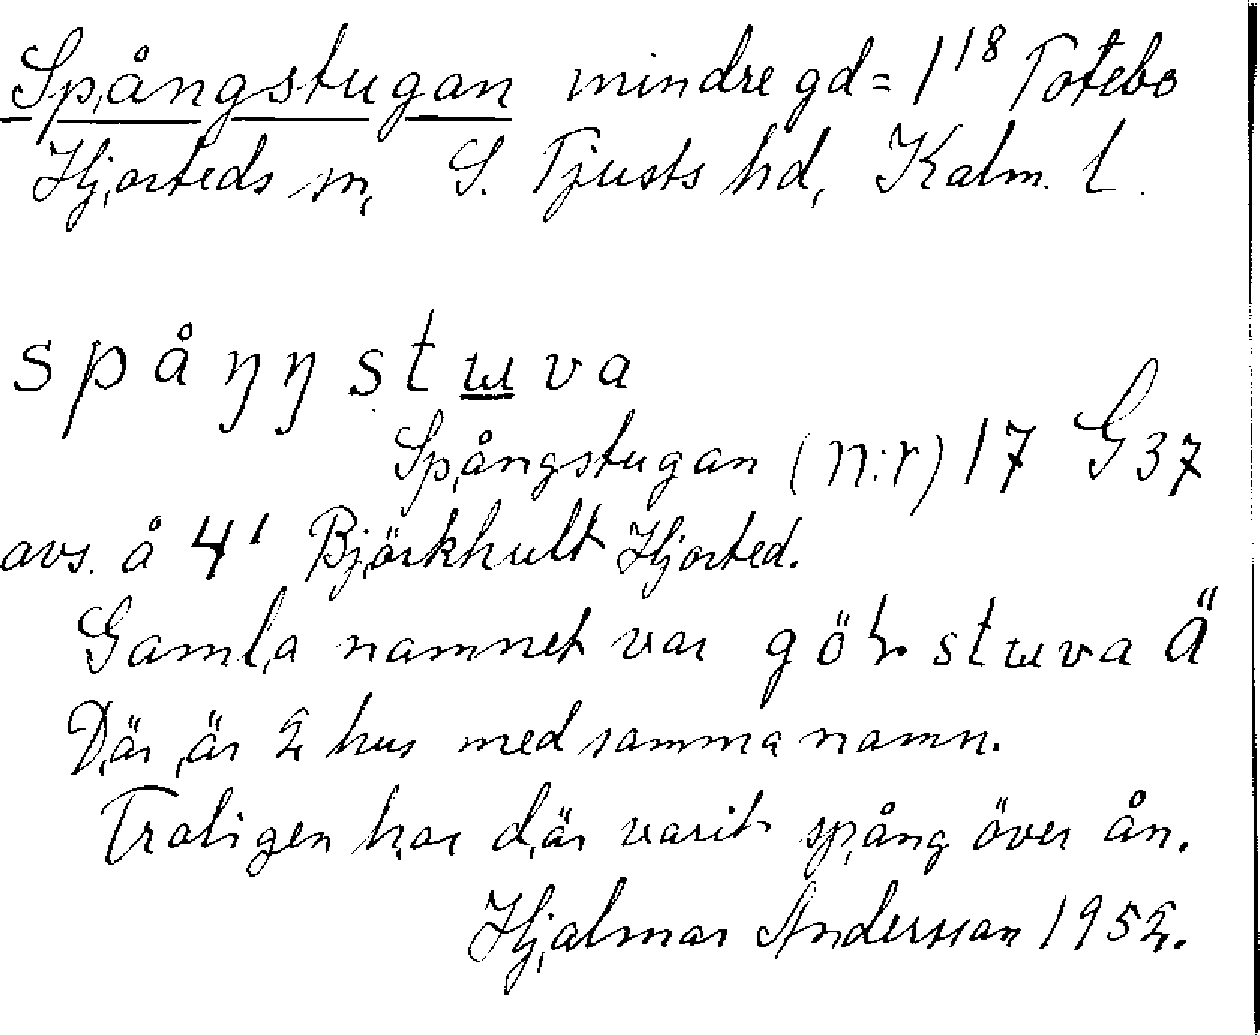 Spångstugan mindre gd = 1¹⁸ Totebo
Hjorteds sn, S. Tjusts hd, Kalm. l.
spåŋŋstɯva
Spångstugan (n:r) 17 G37
avs. å 4¹ Björkhult Hjorted.
Gamla namnet var stɯva Ä
Där är 2 hus med samma namn.
Troligen har där varit spång över ån.
Hjalmar Andersson 1952.